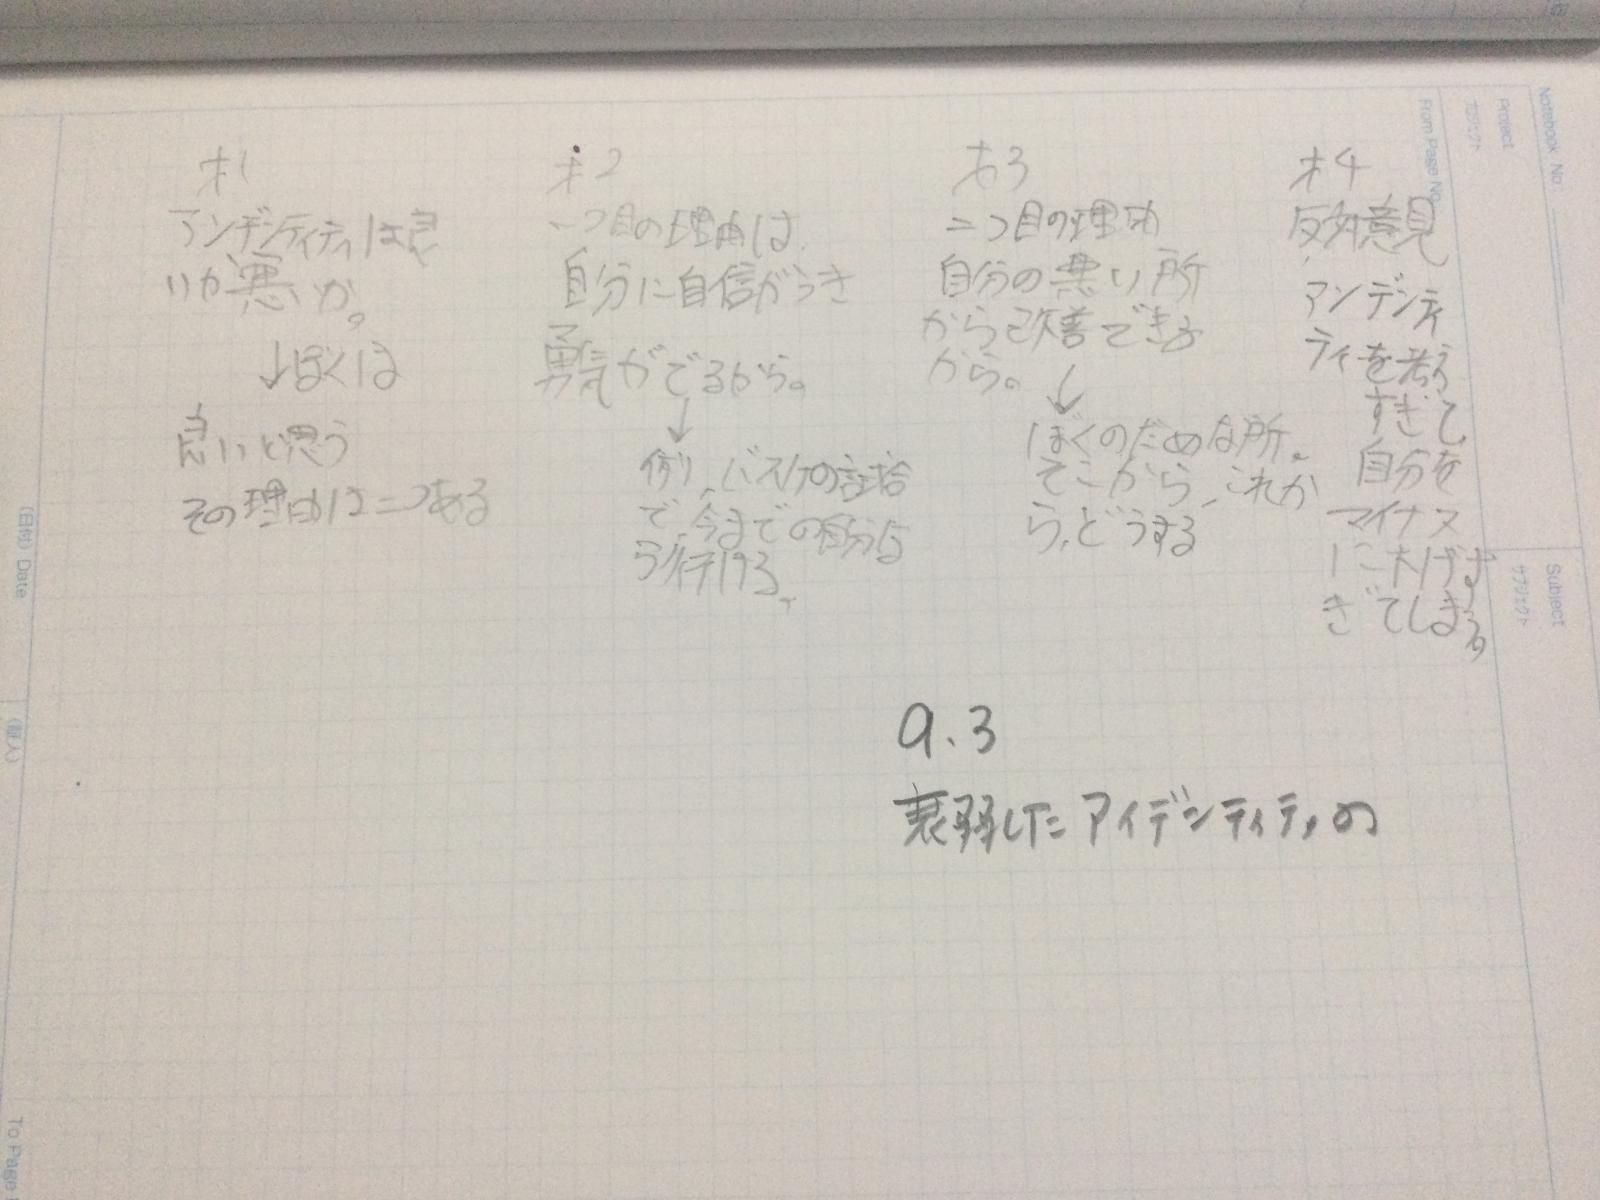 才1
アンデンティティは良
いか悪いか。
↓ぼくは
良いと思う
その理由は二つある
才2
一つ目の理由は
自分に自信がつき
勇気がでるから。
↓
例 バスケの試合
で、今までの自分な
才3
二つ目の理由
自分の悪い所
から改善できる
から。
↓
ぼくのだめな所。
そこから、これか
ら、どうする
才4
反対意見
アンデンティ
ティを考え
すぎて
自分を
マイナス
に下げす
ぎてしまう。
9.3
衰弱したアイデンティティの
Notebook No.
Project
プロジェクト
From Page No.
Subject
サブジェクト
(日付) Date
(記入)
To Page